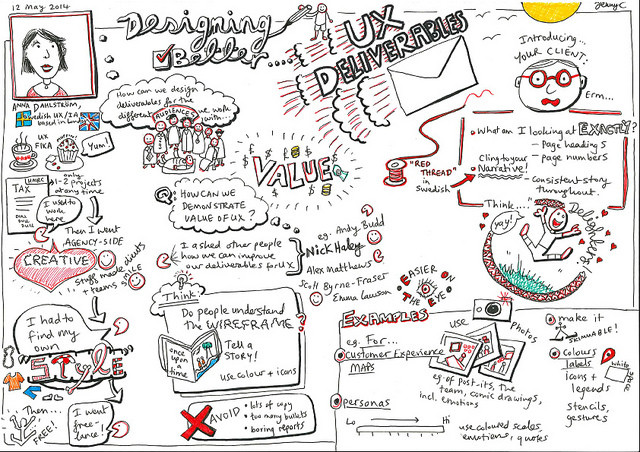 12 May 2014
Designing
Better....
UX
DELIVERABLES
JennyC
ANNA DAHLSTRÖM,
Swedish UX/IA
based in London
UX
FIKA
Yum!
TAX
HMRC
only
1-2 projects
at any time
I used to
work
here
Then I went
AGENCY-SIDE
CREATIVE
stuff made clients
+ teams SMILE
I had to
find my
own
"STYLE"
Then...
FREE!
I went
free-
lance!
How can we design
deliverables for the
different AUDIENCES we work
with...
VALUE
@:
HOW CAN WE
DEMONSTRATE
VALUE OF UX?
I asked other people
how we can improve
our deliverables for UX
eg. Andy Budd
Nick Haley
Alex Matthews
Scott Byrne-Fraser
Emma Lawson
Think
Do people understand
the WIREFRAME?
once
upon a
time
Tell a
STORY!
use colour + icons
AVOID
• lots of copy
• too many bullets
• boring reports
Introducing...
YOUR CLIENT:
Erm...
"RED
THREAD"
in
Swedish
• What am I looking at EXACTLY?
- Page headings
- Page numbers
Cling to your
Narrative!
- Consistent story
throughout.
Think....
yay!
"Delighters"
EASIER ON
THE EYE
EXAMPLES
eg. For...
Customer Experience
MAPS
personas
Lo
Hi
use
PHOTOS
eg. of post-its, the
team, comic drawings,
incl. emotions
use coloured scales,
emotions, quotes
make it
SKIMMABLE!
Colours
labels
icons +
legends
stencils,
gestures
white